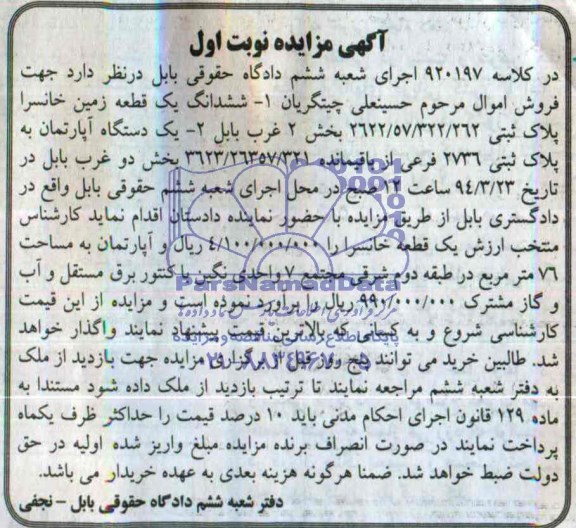 آگهی مزایده نوبت اول
در کلاسه ۹۲۰۱۹۷ اجرای شعبه ششم دادگاه حقوقی بابل درنظر دارد جهت
فروش اموال مرحوم حسینعلی چیتگریان ۱- ششدانگ یک قطعه زمین خانسرا
پلاک ثبتی ۲۶۲۲/۵۷/۳۲۲/۲۶۲ بخش ۲ غرب بابل ۲- یک دستگاه آپارتمان به
پلاک ثبتی ۲۷۳۶ فرعی از باقیمانده ۳۶۲۳/۲۶۳۵۷/۳۲۱ بخش دو غرب بابل در
تاریخ ۹۴/۳/۲۳ ساعت ۱۲ صبح در محل اجرای شعبه ششم حقوقی بابل واقع در
دادگستری بابل از طریق مزایده با حضور نماینده دادستان اقدام نماید کارشناس
منتخب ارزش یک قطعه خانسرا را ۴/۱۰۰/۰۰۰/۰۰۰ ریال و آپارتمان به مساحت
۷۶ متر مربع در طبقه دوم شرقی مجتمع ۷ واحدی نگین با کنتور برق مستقل و آب
و گاز مشترک ۹۹۰/۰۰۰/۰۰۰ ریال را برآورد نموده است و مزایده از این قیمت
کارشناسی شروع و به کسانی که بالاترین قیمت پیشنهاد نمایند واگذار خواهد
شد. طالبین خرید می توانند پنج روز قبل از برگزاری مزایده جهت بازدید از ملک
به دفتر شعبه ششم مراجعه نمایند تا ترتیب بازدید از ملک داده شود مستندا به
ماده ۱۲۹ قانون اجرای احکام مدنی باید ۱۰ درصد قیمت را حداکثر ظرف یکماه
پرداخت نمایند در صورت انصراف برنده مزایده مبلغ واریز شده اولیه در حق
دولت ضبط خواهد شد. ضمنا هرگونه هزینه بعدی به عهده خریدار می باشد.
دفتر شعبه ششم دادگاه حقوقی بابل - نجفی
ParsNamadData
پایگاه اطلاع رسانی مناقصه و مزایده